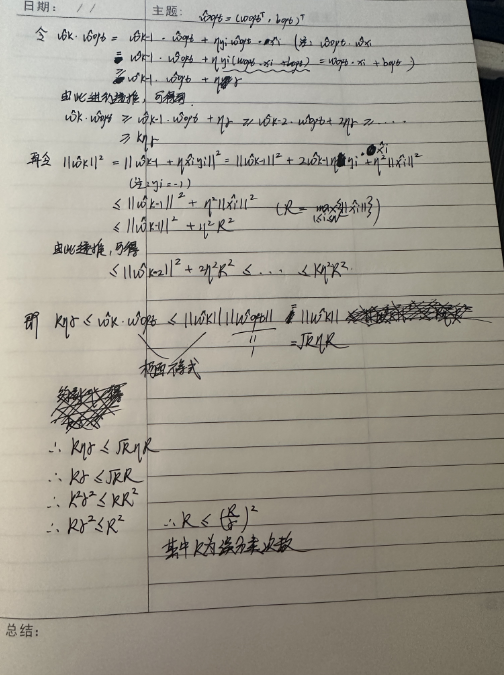 日期: / /
主题:
ŵopt = (wopt^T, bopt)^T
令 ŵk·ŵopt = ŵk-1·ŵopt + ηyi ŵopt·x̂i (注: ŵopt·x̂i
= ŵk-1·ŵopt + ηyi(wopt·xi + bopt) = wopt·xi + bopt)
≥ ŵk-1·ŵopt + ηγ
由此进行递推,可得
ŵk·ŵopt ≥ ŵk-1·ŵopt + ηγ ≥ ŵk-2·ŵopt + 2ηγ ≥ ....
≥ kηγ
再令 ||ŵk||² = ||ŵk-1 + ηx̂iyi||² = ||ŵk-1||² + 2ŵk-1ηyi·x̂i + η²||x̂i||²
(注: yi = -1)
≤ ||ŵk-1||² + η²||x̂i||² (R = max{||x̂i||})
1≤i≤N
≤ ||ŵk-1||² + η²R²
由此递推,可得
≤ ||ŵk-2||² + 2η²R² ≤ ... ≤ kη²R².
即 kηγ ≤ ŵk·ŵopt ≤ ||ŵk|| ||ŵopt|| = ||ŵk||
= √kηR
1
柯西不等式
∴ kηγ ≤ √kηR
∴ kγ ≤ √kR
∴ k²γ² ≤ kR²
∴ kγ² ≤ R² ∴ k ≤ (R/γ)²
其中k为误分类次数
总结: